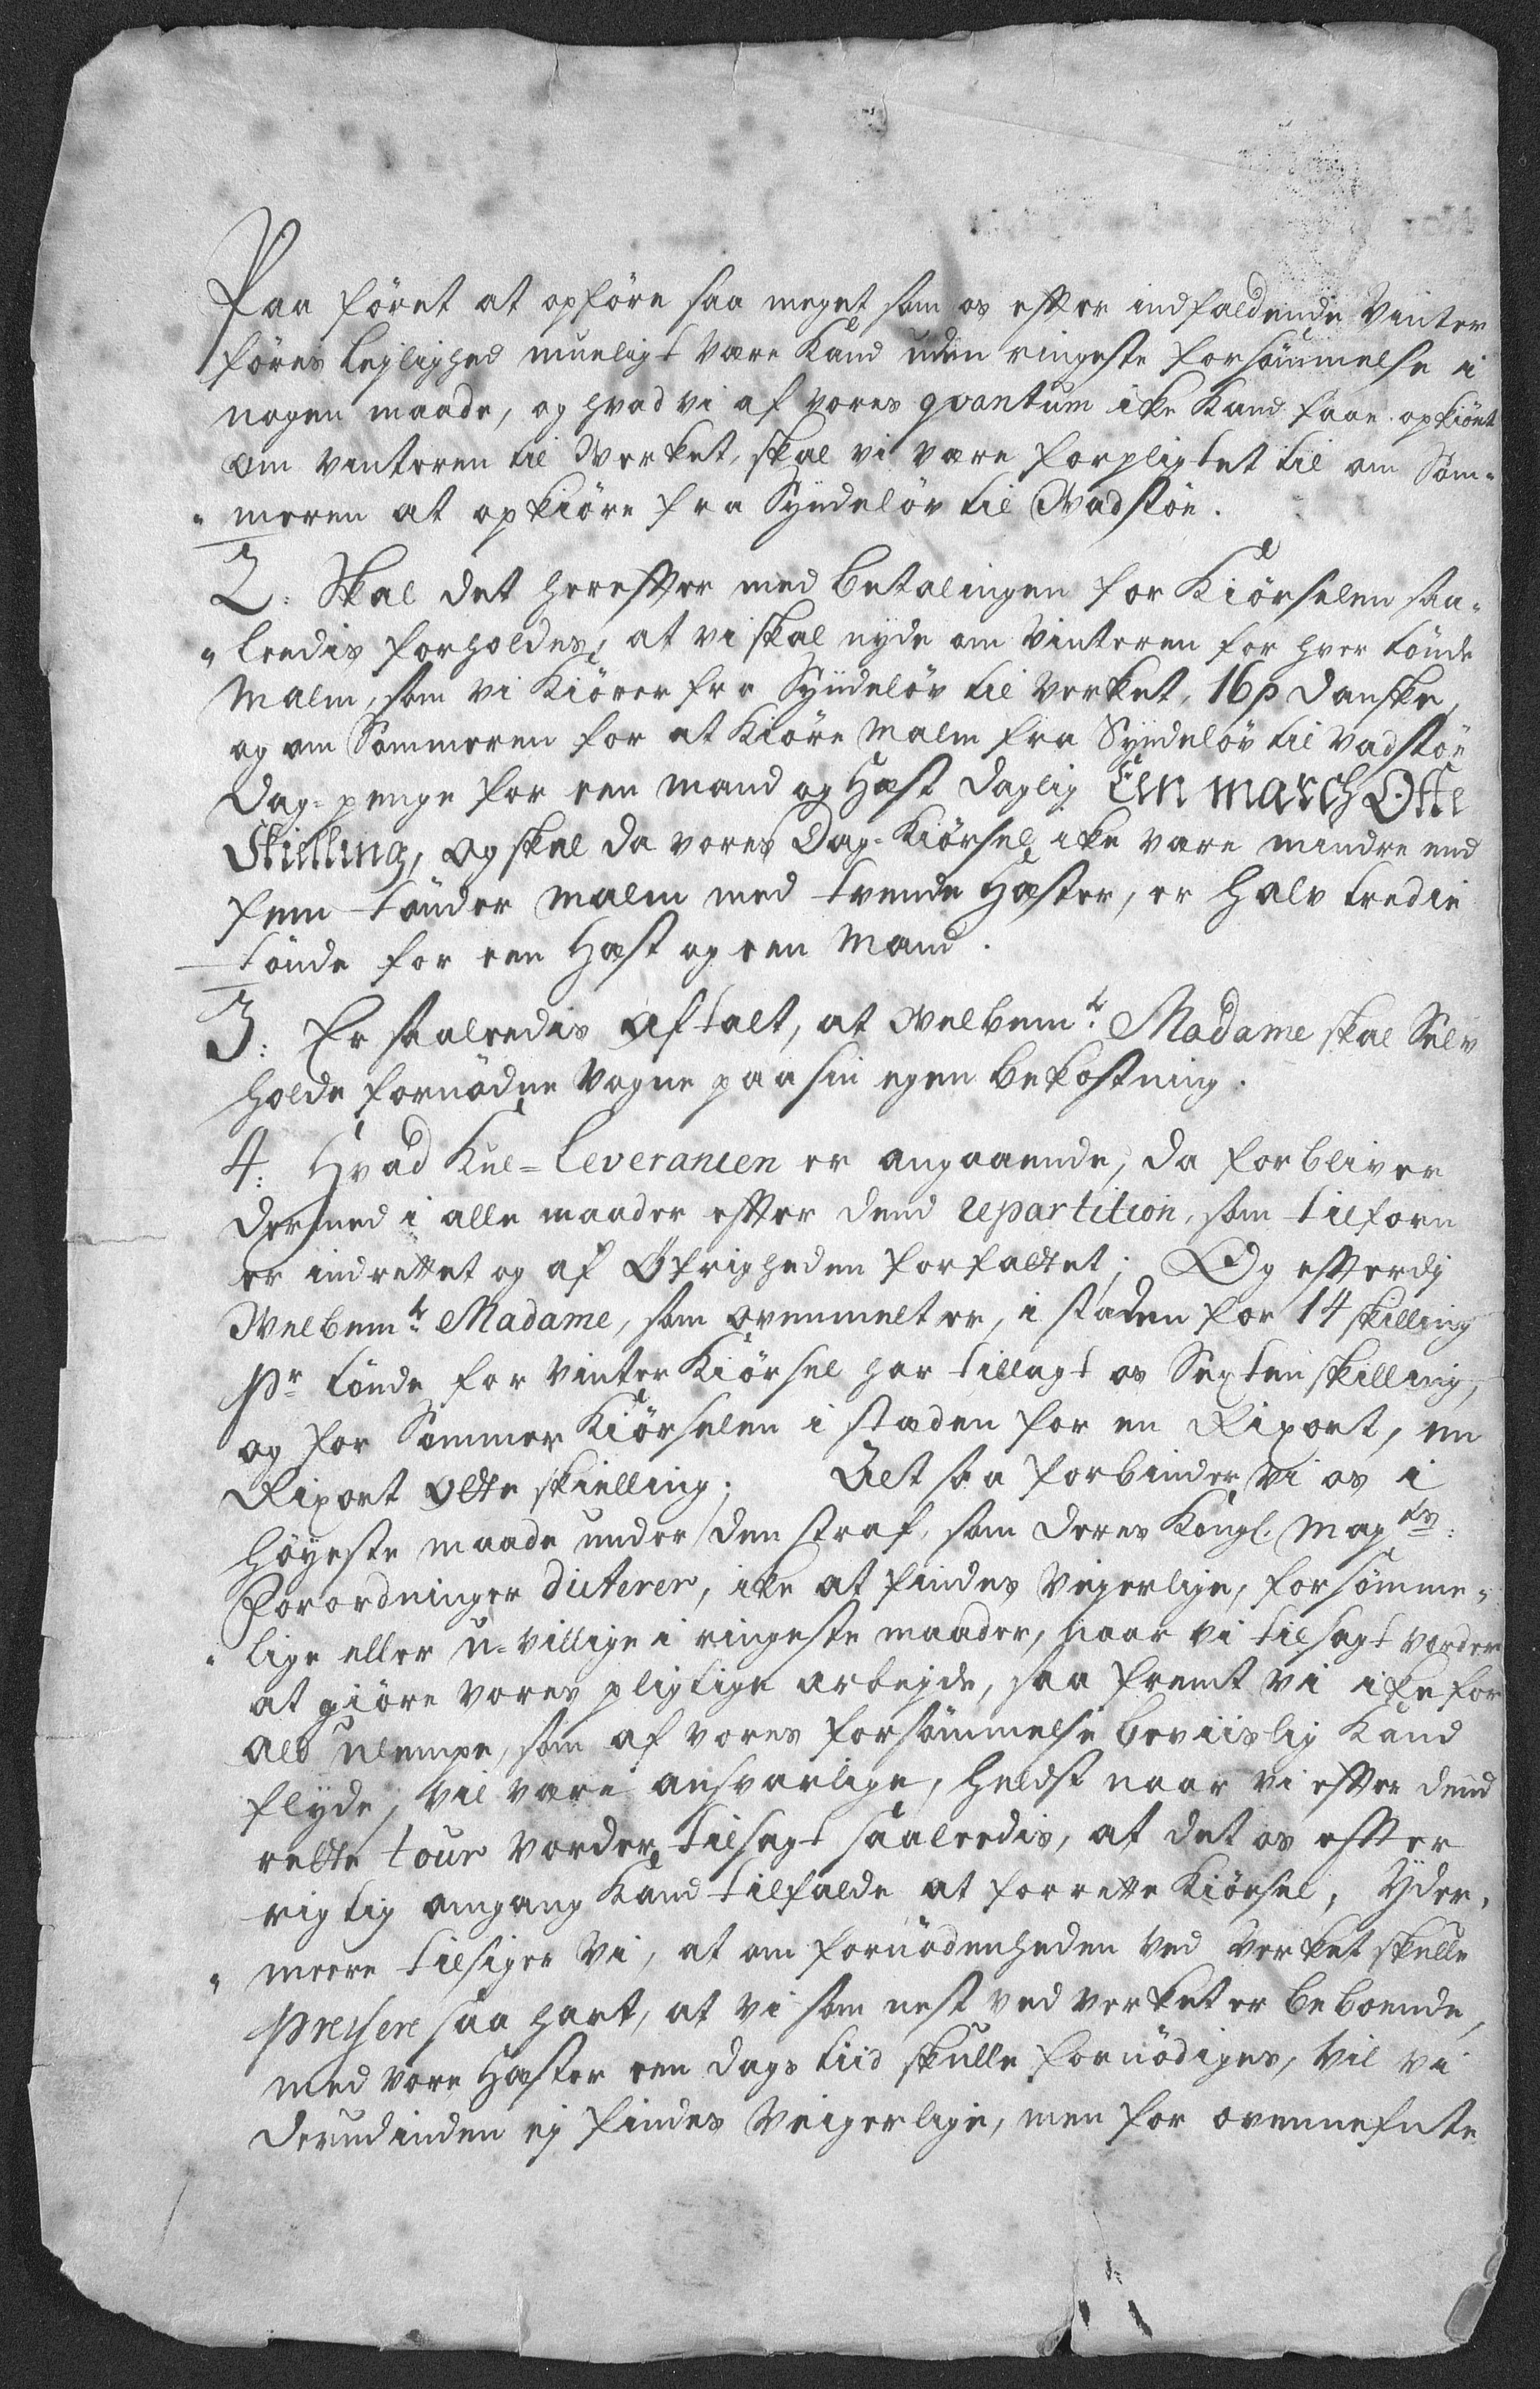 Paa föret at opföre saa meget som os efter indfaldende Vinter
föres lejlighed mueligt være Kand uden ringeste forsömmelse i
nogen maade, og hvad vi af vores qvantum icke Kand faae opkiört
om vinteren til Werket, skal vi være forpligtet til om Som-
meren at opkiöre fra Syndeløv til Wadstöe.
2: Skal det herefter med betalingen for Kiörselen saa-
leedis forholdes, at vi skal nyde om Vinteren for hver tönde
Malm, som vi Kiörer fra Syndelöv til Verket, 16 ß danske,
og om Sommeren for at Kiöre Malm fra Syndelöv til Vadstöe
Dag-penge for een mand og Hæst daglig Een march Otte
Skielling, og skal da vores Dag-Kiörsel icke være mindre end
fem tönder Malm med tvende Hæster, er halv tredie
tönde for een Hæst og een Mand.
3: Er saaleedis aftalt, at Welbemte Madame skal Selv
holde fornödne Vogne paa sin egen bekostning.
4: Hvad Kul-Leverancen er angaaende, da forbliver
dermed i alle maader efter dend repartition, som tilforn
er indrettet og af Öfrigheden forfattet; Og efterdj
Welbemte Madame, som ovenmelt er, i stæden for 14 skilling
pr tönde for vinter Kiörsel har tillagt os Sexten skilling,
og for Sommer Kiörselen i stæden for en Rixort, en
Rixort otte skielling; Alt saa forbinder vi os i
höyeste maade under den straf, som deres Kongl. Mayts:
Forordninger dicterer, icke at findes Vejerlige, forsömme-
lige eller u-villige i ringeste maader, naar vi tilsagt vorder
at giöre vores pligtige arbejde, saa fremt vi icke for
ald ulempe, som af vores forsömmelse beviislig Kand
flyde, vil være ansvarlige, heldst naar vi efter dend
rette tour vorder tilsagt saaleedis, at det os efter
rigtig omgang Kand tilfalde at forrette Kiörsel; Yder-
meere tilsiger Vi, at om fornödenheden ved Verket skulle
pressere saa hart, at vi som nest ved verket er beboende,
med vore Hæster een dags tiid skulle fornödiges, vil vi
derudinden ej findes Veigerlige, men for ovennefnte